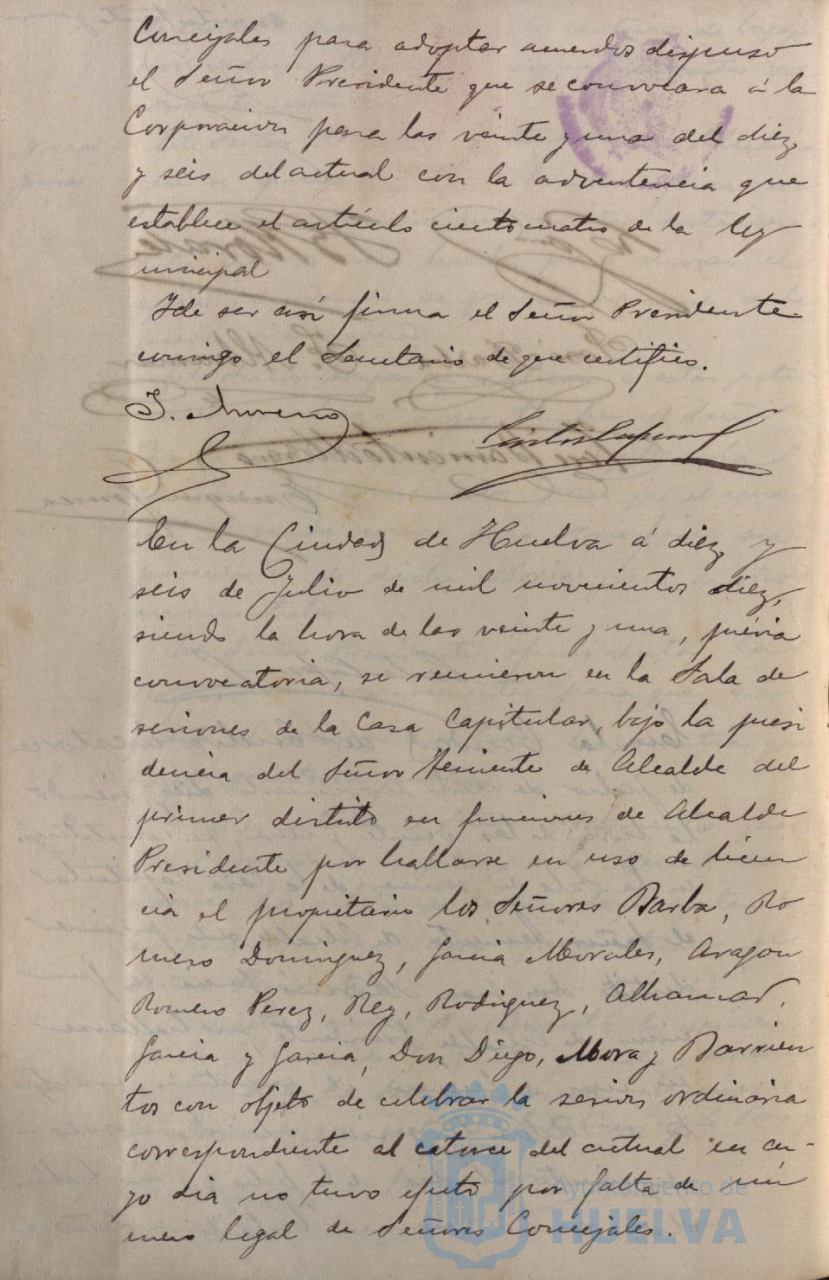 Concejales para adoptar acuerdos dispuso
el Señor Presidente que se convocara á la
Corporacion para las veinte y una del diez
y seis del actual con la advertencia que
establece el artículo ciento cuatro de la ley
municipal
Y de ser así firma el Señor Presidente
conmigo el Secretario de que certifico.
J. Moreno
En la Ciudad de Huelva á diez y
seis de Julio de mil novecientos diez,
siendo la hora de las veinte y una, prévia
convocatoria, se reunieron en la Sala de
sesiones de la Casa Capitular, bajo la presi
dencia del Señor Teniente de Alcalde del
primer distrito en funciones de Alcalde
Presidente por hallarse en uso de licen
cia el propietario los Señores Barba, Ro
mero Dominguez, Garcia Morales, Aragon
Romero Perez, Rey, Rodriguez, Alhamar,
Garcia y Garcia, Don Diego, Mora y Barrien
tos con objeto de celebrar la sesion ordinaria
correspondiente al catorce del actual en cu-
yo dia no tuvo efecto por falta de nú
mero legal de Señores Concejales.
Ayuntamiento de
HUELVA